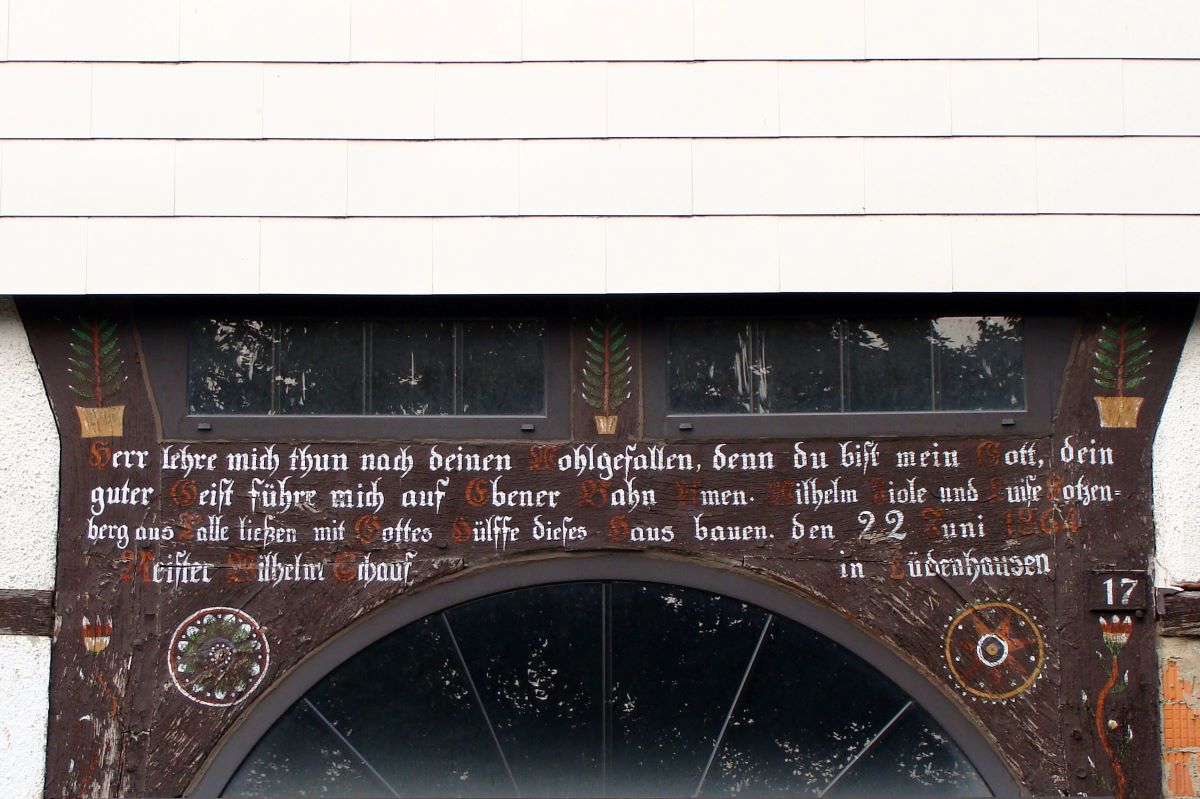 Herr lehre mich thun nach deinen Wohlgefallen, denn du bist mein Gott, dein
guter Geist führe mich auf Ebener Bahn Amen. Wilhelm Niole und Luise Lotzen=
berg aus Talle ließen mit Gottes Hülffe dieses Haus bauen. den 22 Juni
Meister Wilhelm Schauf in Lüdenhausen
17